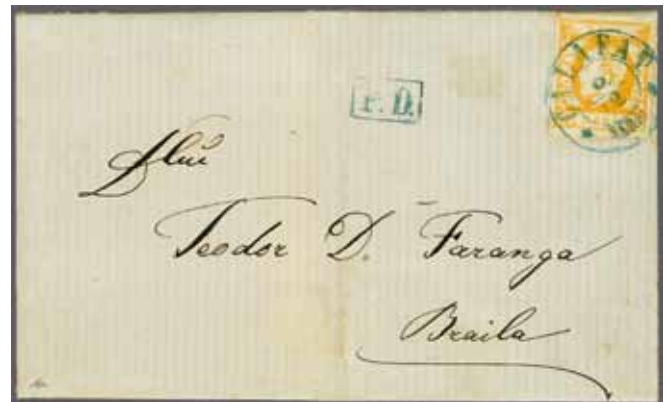 CALAFAT
P.D.
Dlui
Teodor D. Faranga
Braila